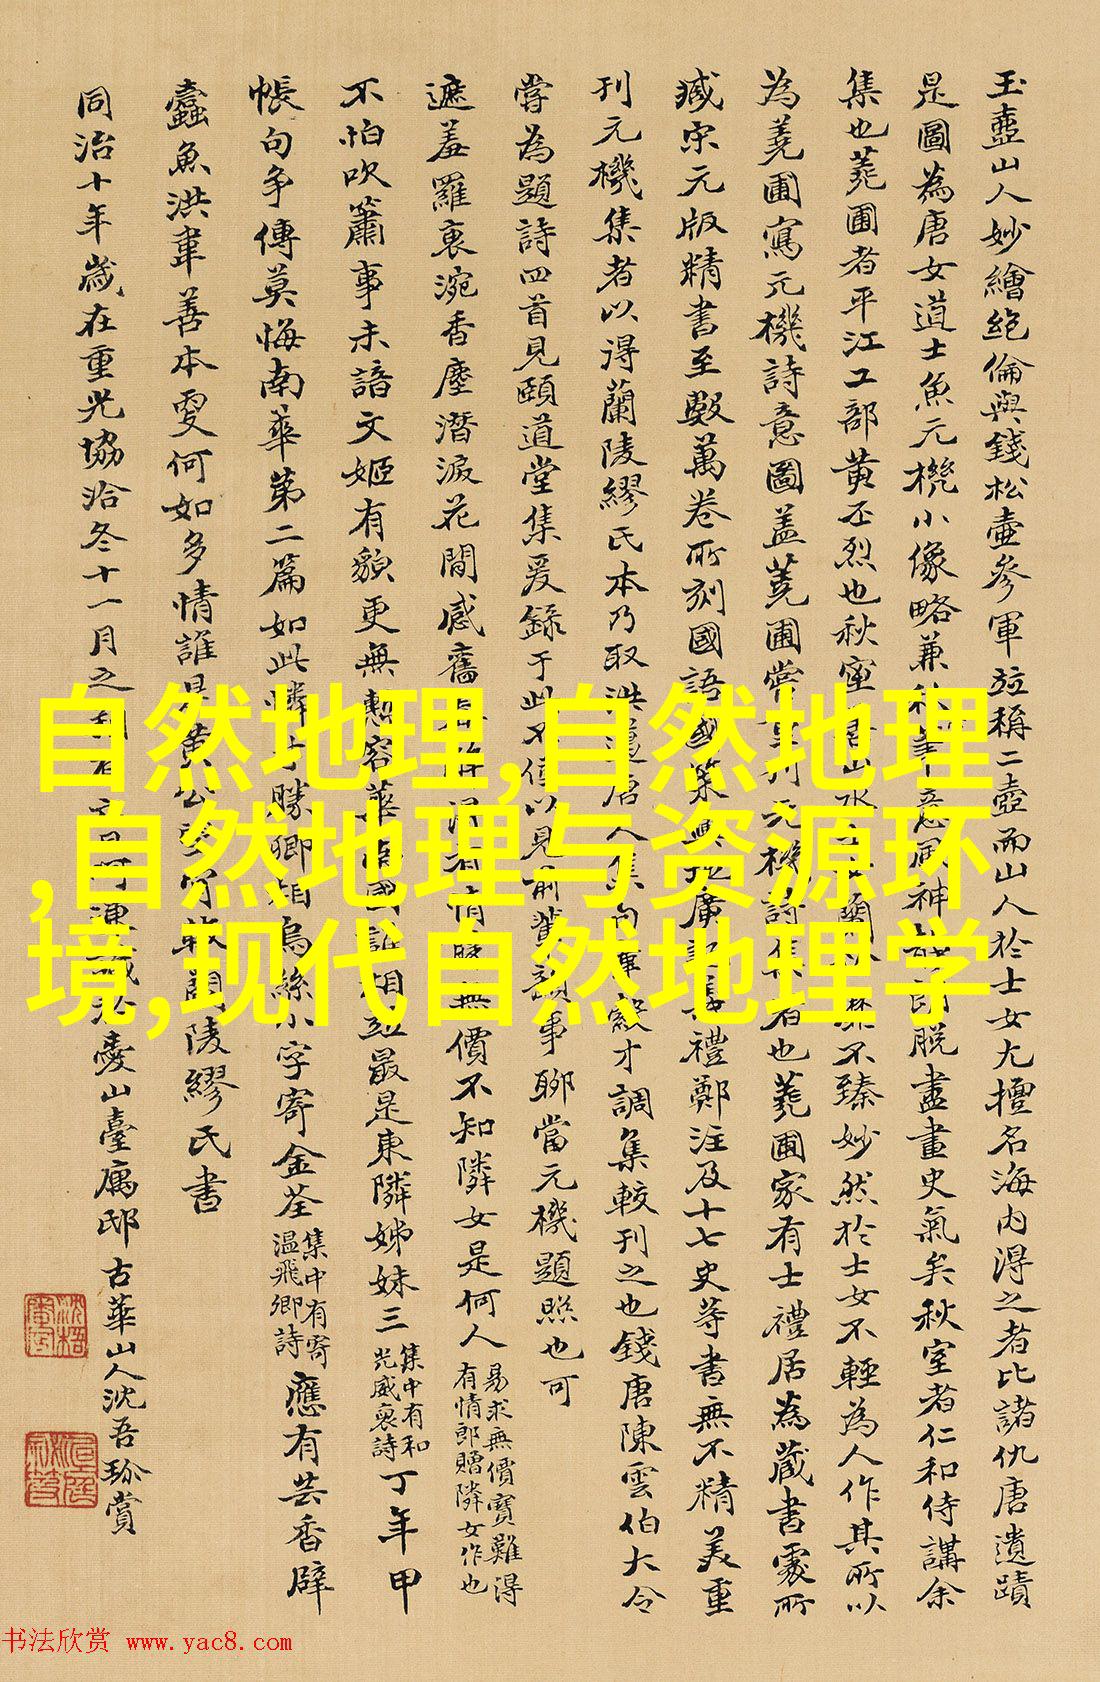 玉壺山人妙繪絕倫與錢松壺參軍竝稱二壺而山人於士女尤擅名海內得之者比諸仇唐遺蹟
是圖為唐女道士魚元機小像略兼秋室筆意風神脫盡畫史氣矣秋室者仁和侍講余
集也蕘圃者平江工部黃丕烈也秋室山水蘭不臻妙然於士女不輕為人作其所以
為蕘圃寫元機詩意圖盖蕘圃嘗刊元機詩集者也蕘圃家有士禮居為藏書處所
臧宋元版精書至數萬卷所刻國語國策廣記禮鄭注及十七史等書無不精美重
刊元機集者以得蘭陵繆氏本乃取洪邁唐人集韋縠才調集較刊之也錢唐陳雲伯大令
嘗為題詩四首見頤道堂集爰錄于此不僅以見前輩韻事聊當元機題照也可
遮羞羅裹涴香塵潛淚花間感舊無價不知隣女是何人
易求無價寶難得
有情郎贈隣女作也
不怕吹簫事未諳文姬有貌更無慙容華南國誰相竝最是東隣姊妹三
集中有和
光威裒詩
丁年甲
帳句爭傳莫悔南華第二篇如此憐才勝卿相烏絲小字寄金荃
集中有寄
温飛卿詩
應有芸香辟
蠹魚洪韋善本更何如多情誰是黃公蘭陵繆氏書
同治十年歲在重光協洽冬十一月之臺寓邸古華山人沈吾珎賞
自然地理,自然地理
,自然地理与资源环
境,现代自然地理学
书法欣赏 www.yac8.com